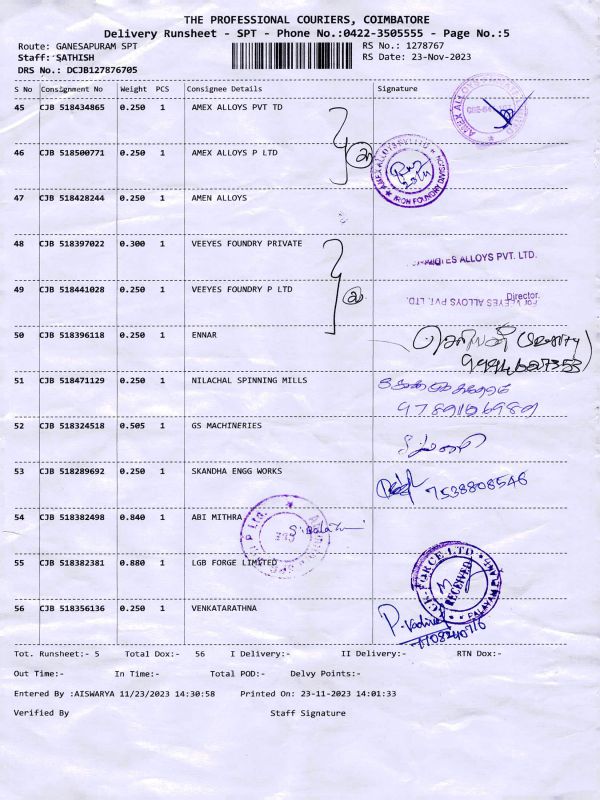 THE PROFESSIONAL COURIERS, COIMBATORE
Delivery Runsheet - SPT - Phone No.:0422-3505555 - Page No.:5
Route: GANESAPURAM SPT
RS No.: 1278767
Staff: SATHISH
RS Date: 23-Nov-2023
DRS No.: DCJB127876705
S No Consignment No Weight PCS Consignee Details Signature
45 CJB 518434865 0.250 1 AMEX ALLOYS PVT TD
46 CJB 518500771 0.250 1 AMEX ALLOYS P LTD
IRON FOUNDRY DIVISION
47 CJB 518428244 0.250 1 AMEN ALLOYS
48 CJB 518397022 0.300 1 VEEYES FOUNDRY PRIVATE
ALLOYS PVT. LTD.
49 CJB 518441028 0.250 1 VEEYES FOUNDRY P LTD
Director.
For VEEYES ALLOYS PVT. LTD.
50 CJB 518396118 0.250 1 ENNAR
51 CJB 518471129 0.250 1 NILACHAL SPINNING MILLS
52 CJB 518324518 0.505 1 GS MACHINERIES
53 CJB 518289692 0.250 1 SKANDHA ENGG WORKS
7538808546
54 CJB 518382498 0.840 1 ABI MITHRA
55 CJB 518382381 0.880 1 LGB FORGE LIMITED
RECEIVED
56 CJB 518356136 0.250 1 VENKATARATHNA
Tot. Runsheet:- 5 Total Dox:- 56 I Delivery:- II Delivery:- RTN Dox:-
Out Time:- In Time:- Total POD:- Delvy Points:-
Entered By :AISWARYA 11/23/2023 14:30:58 Printed On: 23-11-2023 14:01:33
Verified By Staff Signature